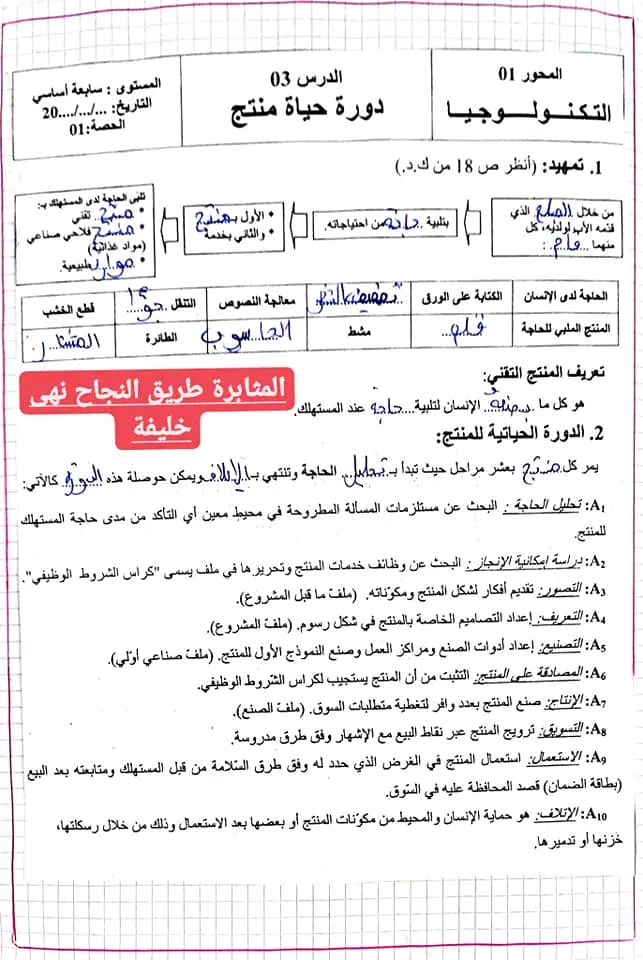 المحور 01
التكنـــولـــوجيـا
الدرس 03
دورة حياة منتج
المستوى : سابعة أساسي
التاريخ: .../.../....20
الحصة:01
1. تمهيد: (أنظر ص 18 من ك.د.)
من خلال الصلح الذي
قدمه الأب لولديه، كل
منهما قام :
بتلبية حاجة من احتياجاته.
• الأول بـ منتج
• والثاني بخدمة
تلبى الحاجة لدى المستهلك بـ:
• منتج تقني
• منتج فلاحي صناعي
(مواد غذائية)
• موارد طبيعية.
الحاجة لدى الإنسان
الكتابة على الورق
تصفيف الشعر
معالجة النصوص
التنقل جوا
قطع الخشب
المنتج الملبي للحاجة
قلم
مشط
الحاسوب
الطائرة
المنشار
تعريف المنتج التقني:
هو كل ما يصنعه الإنسان لتلبية حاجة عند المستهلك.
المثابرة طريق النجاح نهى
خليفة
2. الدورة الحياتية للمنتج:
يمر كل منتج بعشر مراحل حيث تبدأ بـ تحليل الحاجة وتنتهي بـ الإتلاف ويمكن حوصلة هذه الدورة كالآتي:
A1: تحليل الحاجة : البحث عن مستلزمات المسألة المطروحة في محيط معين أي التأكد من مدى حاجة المستهلك
للمنتج.
A2: دراسة إمكانية الإنجاز : البحث عن وظائف خدمات المنتج وتحريرها في ملف يسمى "كراس الشروط الوظيفي".
A3: التصور: تقديم أفكار لشكل المنتج ومكوّناته. (ملفّ ما قبل المشروع).
A4: التعريف: إعداد التصاميم الخاصة بالمنتج في شكل رسوم. (ملفّ المشروع).
A5: التصنيع: إعداد أدوات الصنع ومراكز العمل وصنع النموذج الأول للمنتج. (ملف صناعي أوّلي).
A6: المصادقة على المنتج: التثبت من أن المنتج يستجيب لكراس الشّروط الوظيفي.
A7: الإنتاج: صنع المنتج بعدد وافر لتغطية متطلبات السوق. (ملفّ الصنع).
A8: التسويق: ترويج المنتج عبر نقاط البيع مع الإشهار وفق طرق مدروسة.
A9: الاستعمال: استعمال المنتج في الغرض الذي حدد له وفق طرق السّلامة من قبل المستهلك ومتابعته بعد البيع
(بطاقة الضمان) قصد المحافظة عليه في السّوق.
A10: الإتلاف: هو حماية الإنسان والمحيط من مكوّنات المنتج أو بعضها بعد الاستعمال وذلك من خلال رسكلتها،
خزنها أو تدميرها.